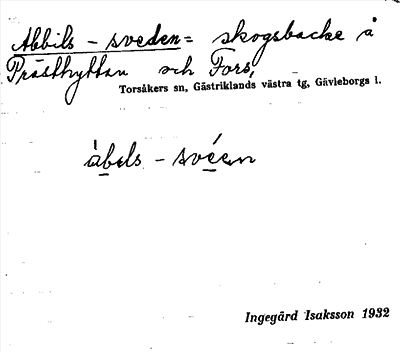 Abbils - sveden = skogsbacke å
Prästhyttan och Fors,
Torsåkers sn, Gästriklands västra tg, Gävleborgs l.
àbels - svéen
Ingegärd Isaksson 1932